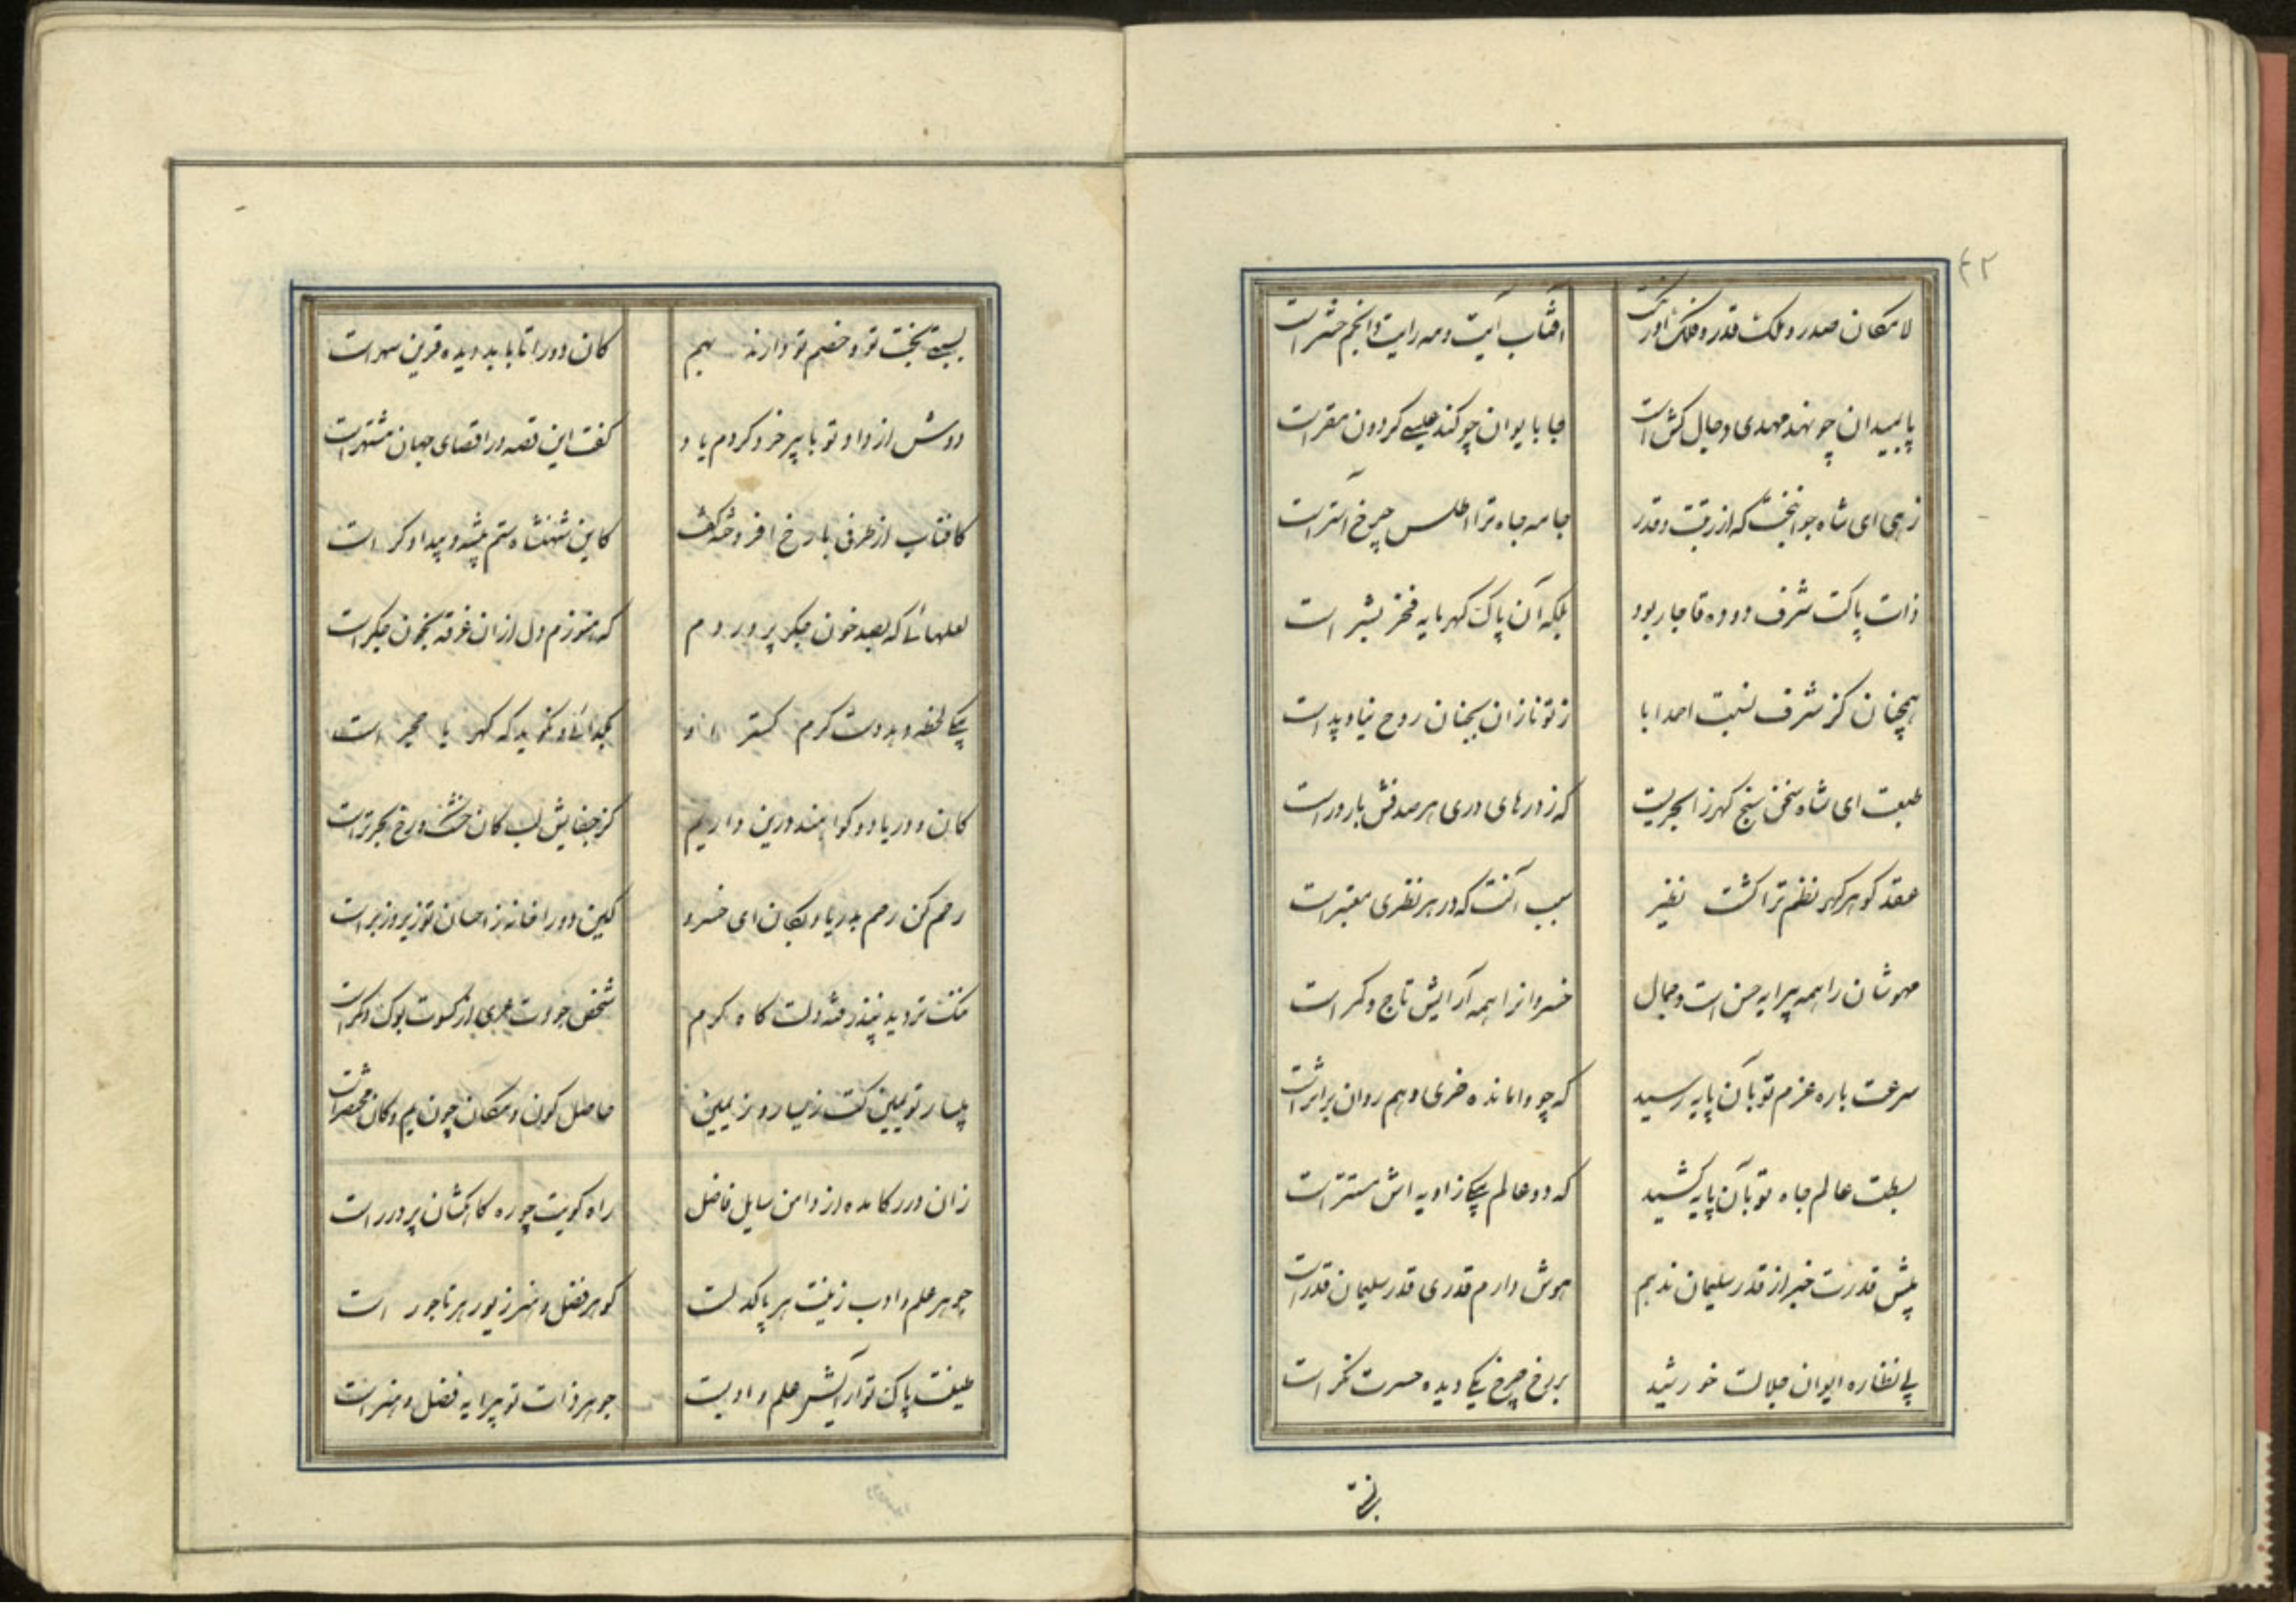 ۴۲
لامکان صدر و ملک قدر و فلک اورنک
آفتاب آیت و مه رایت و انجم حشر است
پا بمیدان چو نهد مهدی دجال کش است
جا بایوان چو کند عیسی کردون مقر است
زهی ای شاه جوانبخت که از رتبت و قدر
جامه جاه ترا اطلس چرخ آستر است
ذات پاکت شرف دوده قاجار بود
بلکه آن پاک کهر مایه فخر بشر است
همچنان کز شرف نسبت احمد ابا
ز تو نازان بجنان روح نیا و پدر است
طبعت ای شاه سخن سنج کهرزا بحریست
که ز درهای دری هر صدفش بارور است
عقد کوهر کهر نظم ترا کشت نغیر
سبب آنست که در هر نظری معتبر است
مهوشان را همه پیرایه حسن است و جمال
خسروانرا همه آرایش تاج و کمر است
سرعت باره عزم تو بآن پایه رسید
که چو وامانده خری وهم روان بر اثر است
بسطت عالم جاه تو بآن پایه کشید
که دو عالم بیکی زاویه اش مستتر است
پیش قدرت خبر از قدر سلیمان ندهم
هوش دارم قدری قدر سلیمان قدر است
پی نظاره ایوان جلالت خورشید
بر رخ چرخ یکی دیده حسرت نکر است
بستی بخت تو و خصم تو دارند بهم
کان دو را تا بابد دیده قرین سهر است
دوش از داد تو با پیر خرد کردم یاد
کفت این قصه در اقصای جهان مشتهر است
کافتاب از طرفی با رخ افروخته کفت
کاین شهنشاه ستم پیشه و بیدادکر است
لعلهائی که بصد خون جکر پروردم
که هنوزم دل از آن غرقه بخون جکر است
بیکی لحظه دهد دست کرم کستر او
بکدائی و نکوید که کهر یا حجر است
کان و دریا دو کواهند درین داریم
کز جفایش لب کان خشک و رخ بحر تر است
رحم کن رحم بدریا و بکان ای خسرو
کاین دو را خانه ز احسان تو زیر و زبر است
منت تردید نپذرفته دلت کاه کرم
شخص جودت عری از کسوت بوک و مکر است
بیسار تو یمین کفت ز یسار و ز یمین
حاصل کون و مکان چون یم و کان محتصر است
زان درر کامده از دامن سایل فاضل
راه کویت چو ره کاهکشان پر درر است
جوهر علم و ادب زینت هر پاکدلست
کوهر فضل و هنر زیور هر تاجور است
طینت پاک تو آرایش علم و ادبست
جوهر ذات تو پیرایه فضل و هنر است